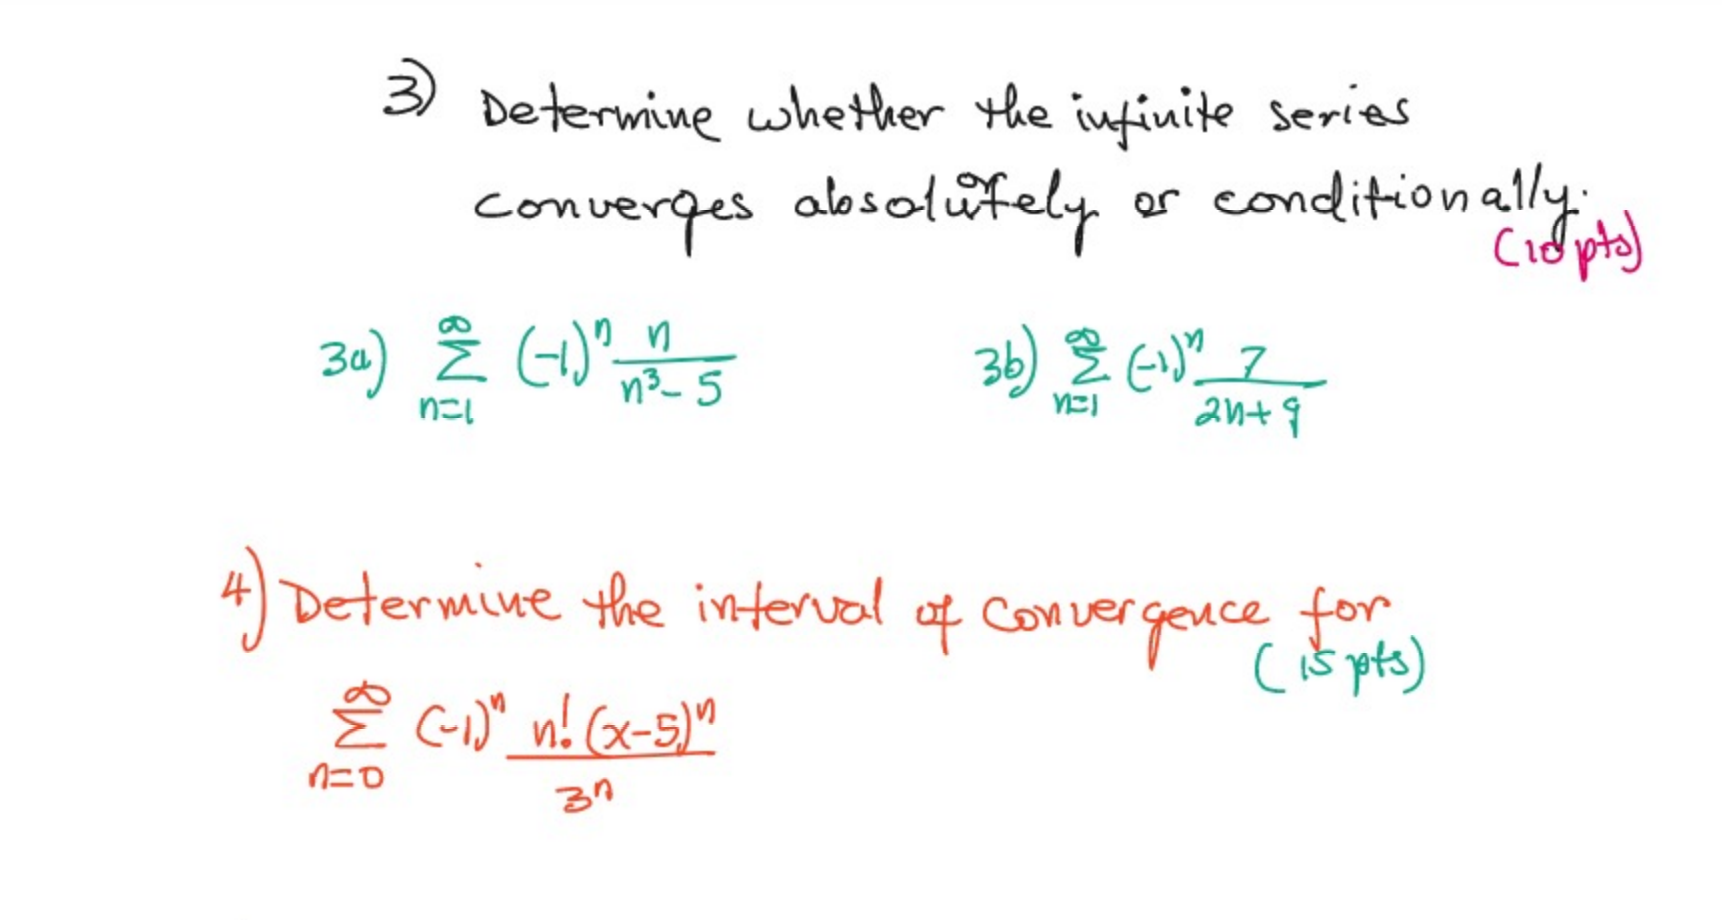 3) Determine whether the infinite series
converges absolutely or conditionally.
(10 pts)
3a) ∞ Σ n=1 (-1)^n n/(n^3 - 5)
3b) ∞ Σ n=1 (-1)^n 7/(2n+9)
4) Determine the interval of convergence for
(15 pts)
∞ Σ n=0 (-1)^n n!(x-5)^n/3^n